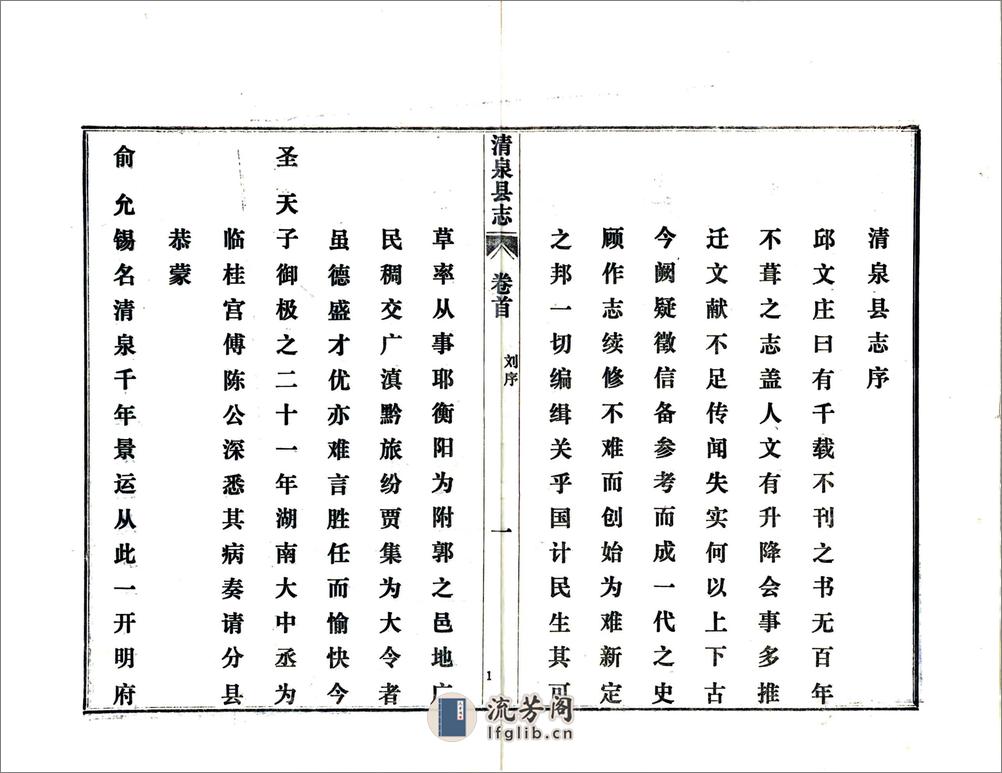 清泉县志序
邱文庄曰有千载不刊之书无百年
不葺之志盖人文有升降会事多推
迁文献不足传闻失实何以上下古
今阙疑徵信备参考而成一代之史
顾作志续修不难而创始为难新定
之邦一切编缉关乎国计民生其可
清泉县志
卷首
刘序
一
1
草率从事耶衡阳为附郭之邑地广
民稠交广滇黔旅纷贾集为大令者
虽德盛才优亦难言胜任而愉快今
圣天子御极之二十一年湖南大中丞为
临桂宫傅陈公深悉其病奏请分县
恭蒙
俞允锡名清泉千年景运从此一开明府
流芳阁
lfglib.cn